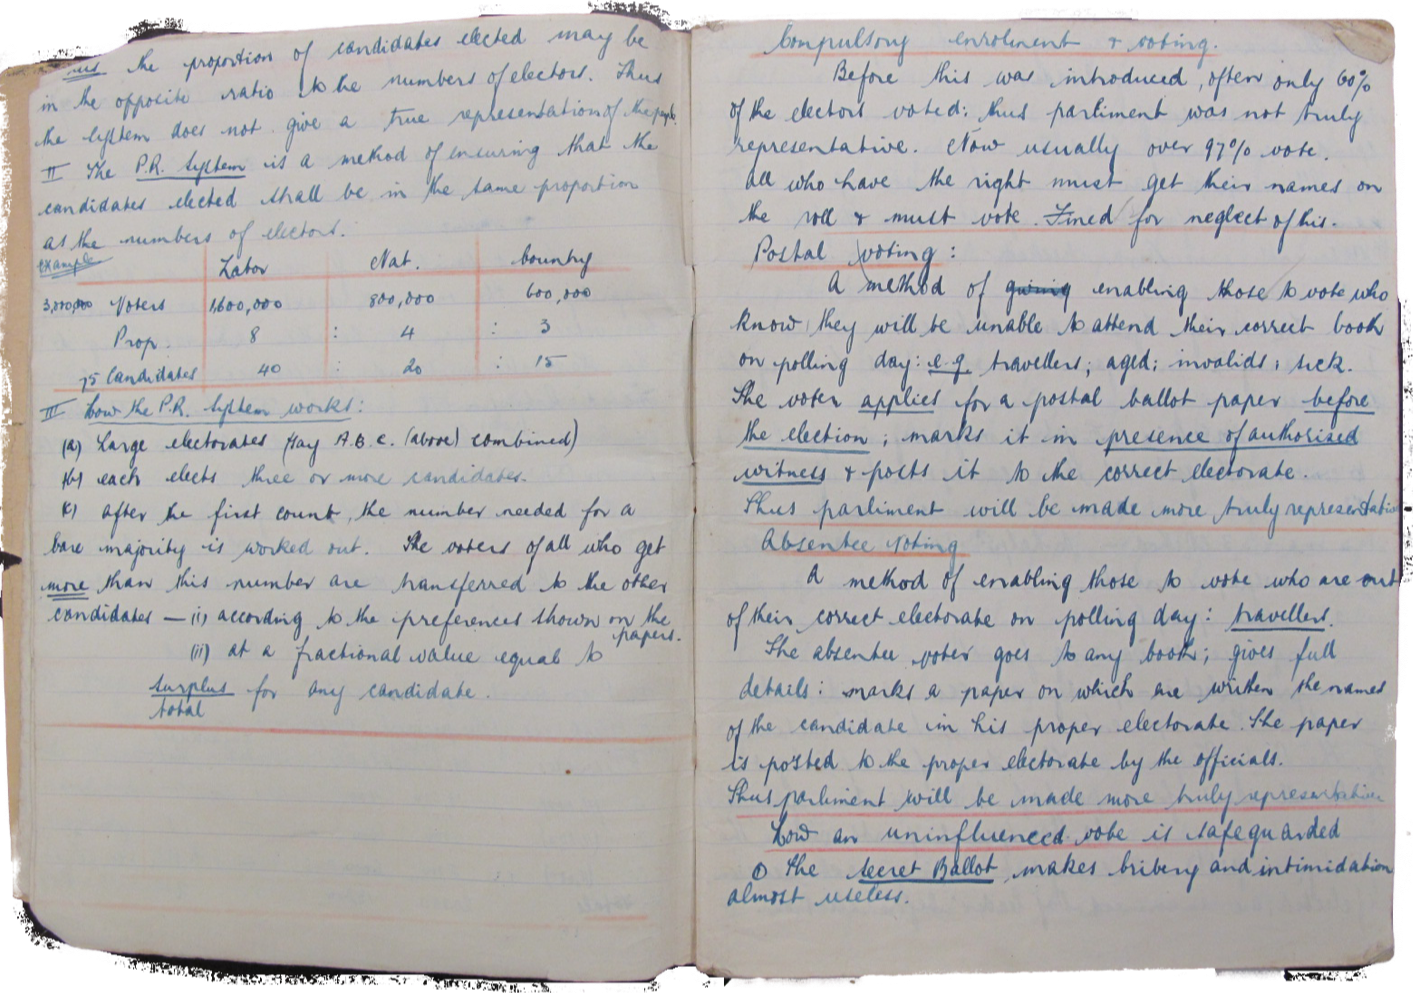 Thus the proportion of candidates elected may be
in the opposite ratio to the numbers of electors. Thus
the system does not give a true representation of the people.
II The P.R. System is a method of ensuring that the
candidates elected shall be in the same proportion
as the numbers of electors.
Example Labor Nat. Country
3,000,000 Voters 1,600,000 800,000 600,000
Prop. 8 : 4 : 3
75 Candidates 40 : 20 : 15
III How the P.R. System works:
(a) Large electorates (say A.B.C. (above) combined)
(b) each elects three or more candidates.
(c) after the first count, the number needed for a
bare majority is worked out. The voters of all who get
more than this number are transferred to the other
candidates — (i) according to the preferences shown on the
papers.
(ii) at a fractional value equal to
surplus
total for any candidate.
Compulsory enrolment & voting.
Before this was introduced, often only 60%
of the electors voted: thus parliment was not truly
representative. Now usually over 97% vote.
All who have the right must get their names on
the roll & must vote. Fined for neglect of his.
Postal voting:
A method of giving enabling those to vote who
know they will be unable to attend their correct booth
on polling day: e.g. travellers; aged; invalids; sick.
The voter applies for a postal ballot paper before
the election; marks it in presence of authorised
witness & posts it to the correct electorate.
Thus parliment will be made more truly representative
Absentee Voting
A method of enabling those to vote who are out
of their correct electorate on polling day: travellers.
The absentee voter goes to any booth; gives full
details: marks a paper on which are written the names
of the candidate in his proper electorate. The paper
is posted to the proper electorate by the officials.
Thus parliment will be made more truly representative
How an uninfluenced vote is safeguarded
① The Secret Ballot makes bribery and intimidation
almost useless.